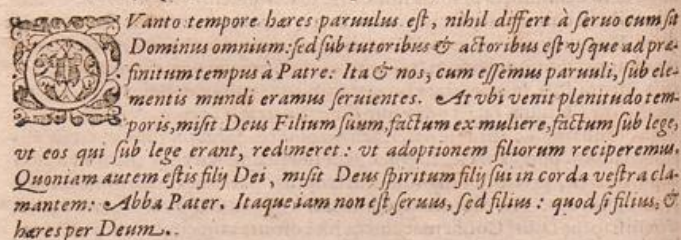 QVanto tempore hæres paruulus est, nihil differt à seruo cum sit
Dominus omnium: sed sub tutoribus & actoribus est vsque ad præ-
finitum tempus à Patre: Ita & nos, cum essemus paruuli, sub ele-
mentis mundi eramus seruientes. At vbi venit plenitudo tem-
poris, misit Deus Filium suum, factum ex muliere, factum sub lege,
vt eos qui sub lege erant, redimeret: vt adoptionem filiorum reciperemus.
Quoniam autem estis filij Dei, misit Deus spiritum filij sui in corda vestra cla-
mantem: Abba Pater. Itaque iam non est seruus, sed filius: quod si filius, &
hæres per Deum.